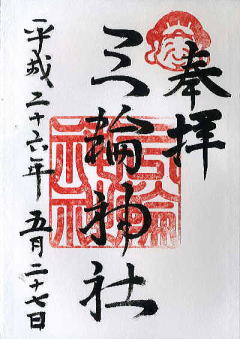 奉拝
三輪神社
平成二十六年五月二十七日